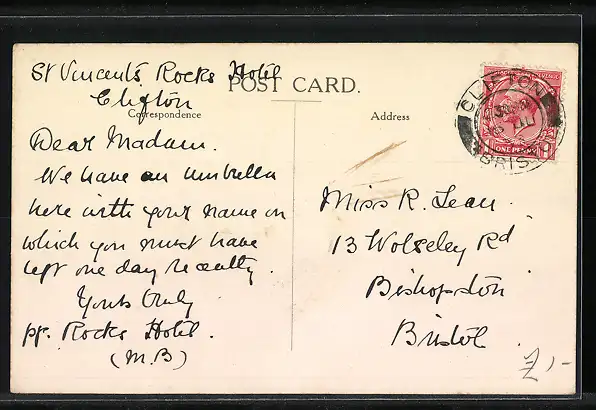 St Vincent's Rocks Hotel
Clifton
POST CARD.
Correspondence
Dear Madam.
We have an umbrella
here with your name on
which you must have
left one day recently.
Yours truly
pp. Rocks Hotel.
(M.B)
Address
Miss R. Jean.
13 Wolseley Rd
Bishopston
Bristol.
CLIFTON
BRIS
ONE PENNY
£1-